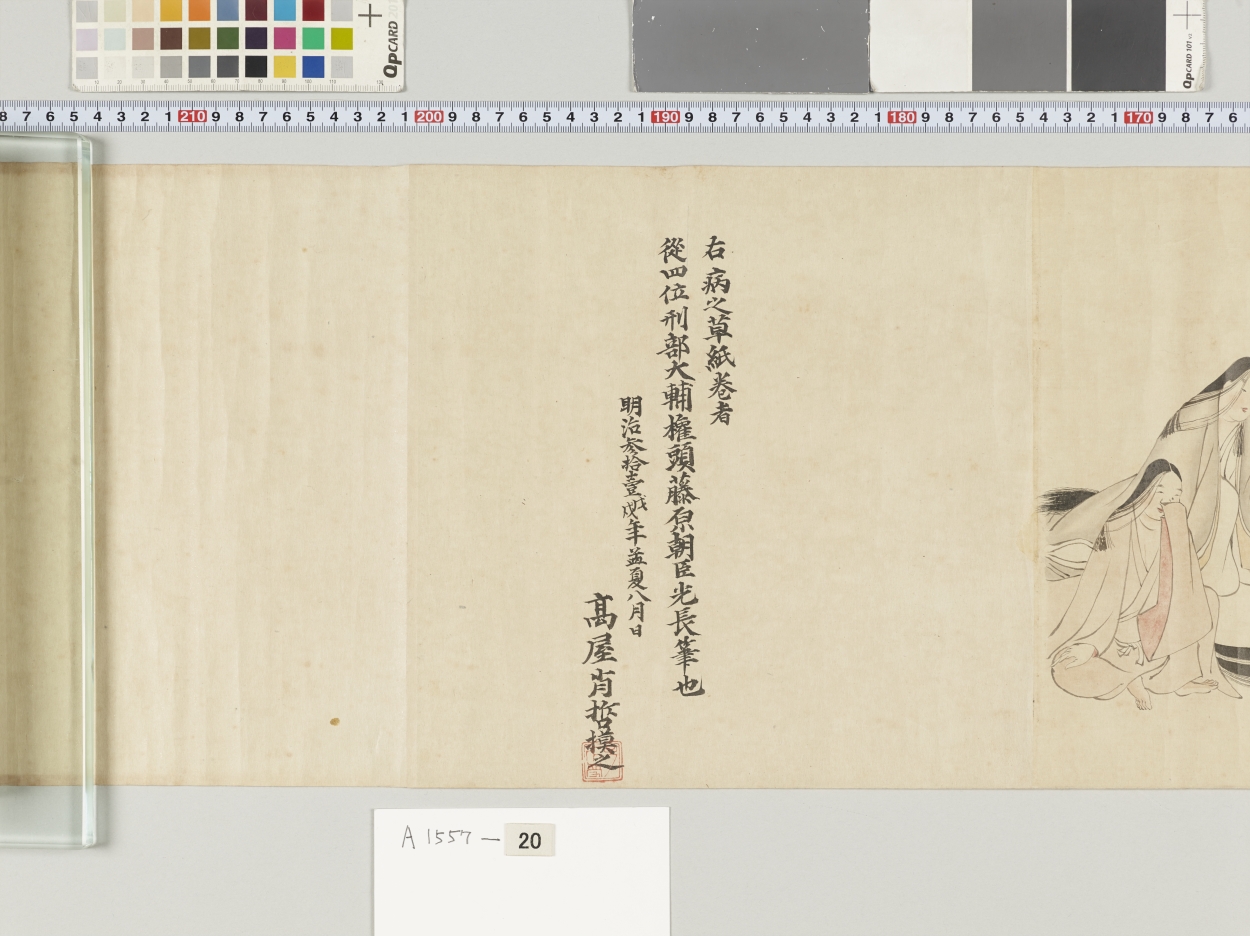 QPCARD 201
QPCARD 101 v3
8 7 6 5 4 3 2 1 210 9 8 7 6 5 4 3 2 1 200 9 8 7 6 5 4 3 2 1 190 9 8 7 6 5 4 3 2 1 180 9 8 7 6 5 4 3 2 1 170 9 8 7 6
右病之草紙巻者
從四位刑部大輔権頭藤原朝臣光長筆也
明治参拾壹戊戌年孟夏八月日
髙屋肖哲摸之
A 1557 — 20